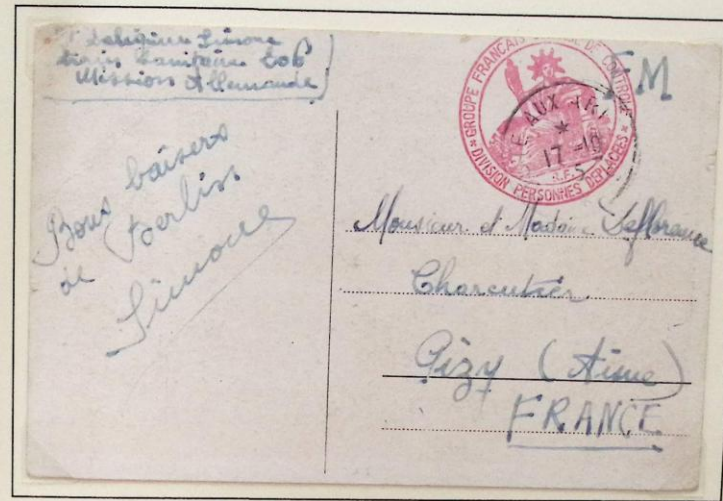 Simone
train Sanitaire 206
Mission Allemande
Bons baisers
de Berlin
Simone
GROUPE FRANÇAIS DE CONTROLE
DIVISION PERSONNES DEPLACEES
FM
AUX
17 -10
Monsieur et Madame Leflorance
Charcutier
Gizy (Aisne)
FRANCE